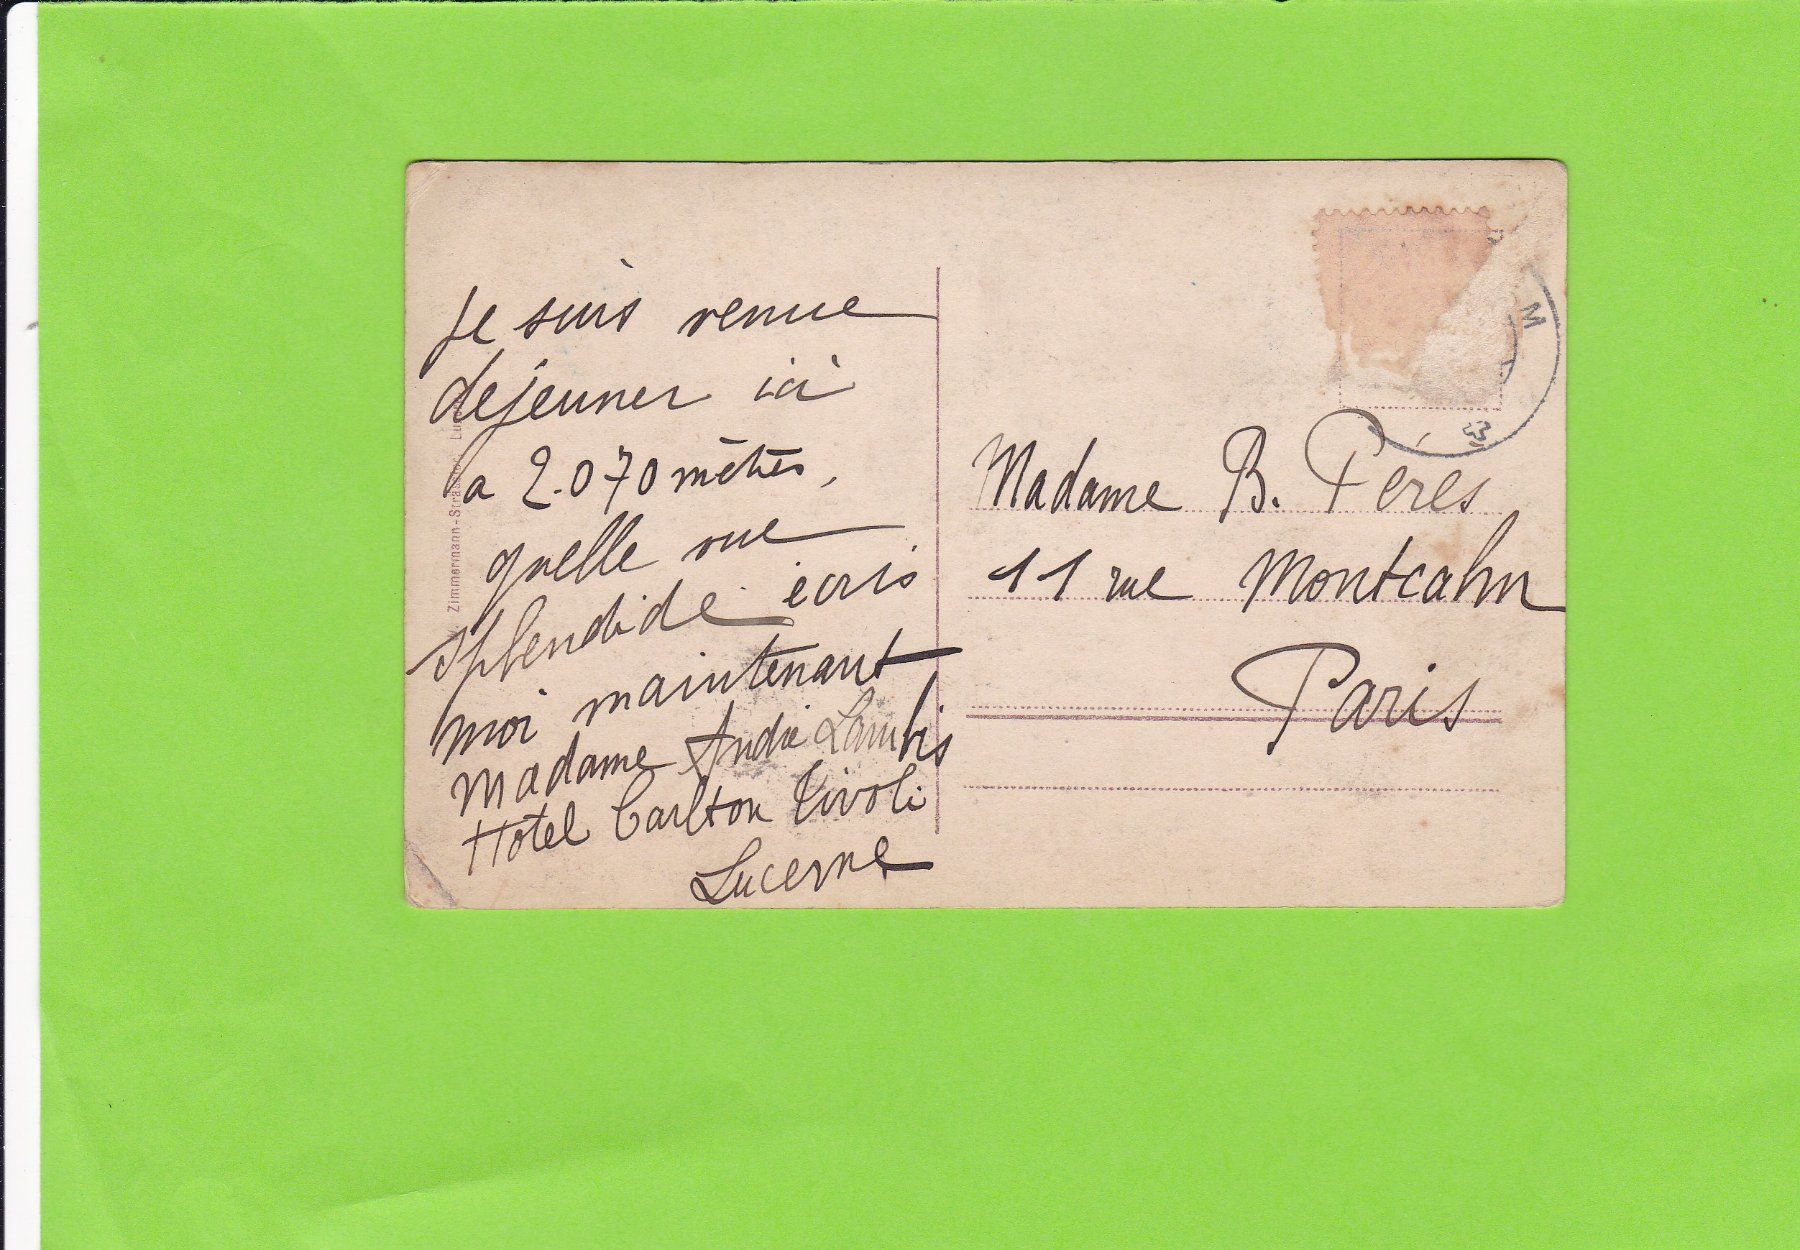 Je suis venue
dejeuner ici
a 2.070 mètres,
quelle vue
splendide écris
moi maintenant
Madame André Lambis
Hotel Carlton Tivoli
Lucerne
Madame B. Pérès
11 rue Montcalm
Paris
Zimmermann-Strasser, Lu
M